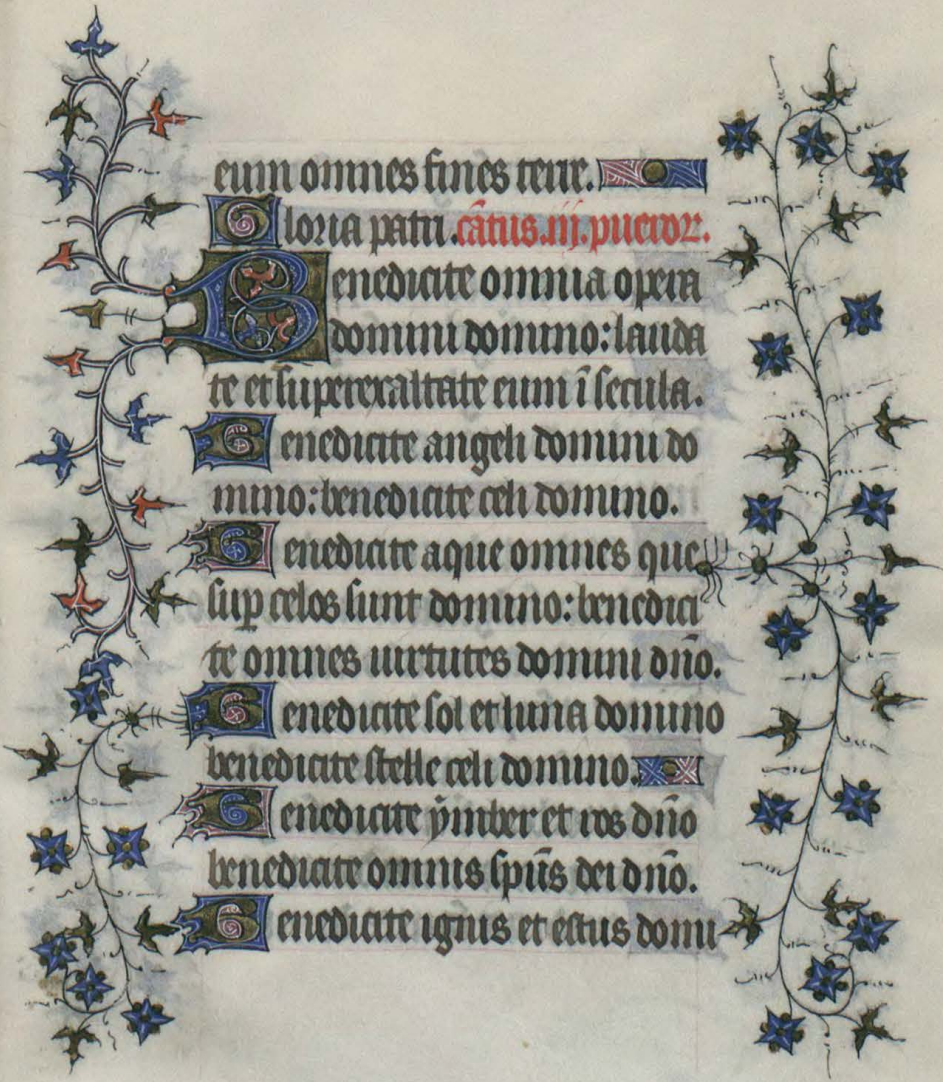 eum omnes fines terre.
Gloria patri. cãtus.iij.pueror̄.
Benedicite omnia opera
domini domino: lauda
te et superexaltate eum ī secula.
Benedicite angeli domini do
mino: benedicite celi domino.
Benedicite aque omnes que
suꝑ celos sunt domino: benedici
te omnes uirtutes domini dño.
Benedicite sol et luna domino
benedicite stelle celi domino.
Benedicite ẏmber et ros dño
benedicite omnis spūs dei dño.
Benedicite ignis et estus domi